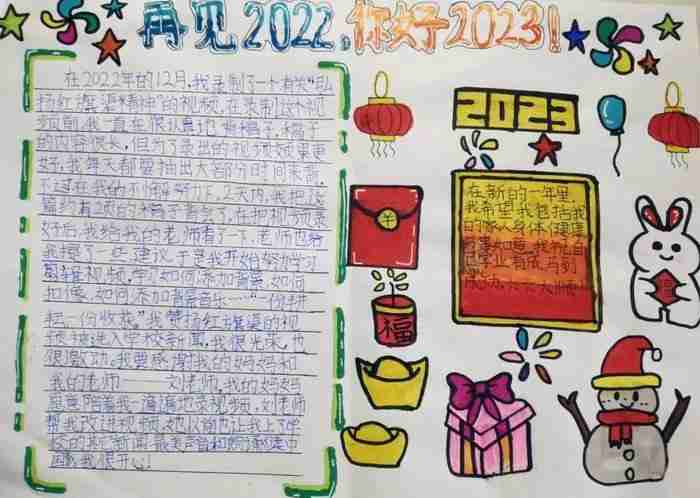 再见2022,你好2023!
在2022年的12月,我录制了一个有关“弘
扬红旗渠精神”的视频,在录制这个视
频前,我一直在很认真地背稿子,稿子
的内容很长,但为了录出的视频效果更
好,我每天都要抽出大部分时间来背,
不过在我的不懈努力下,2天内,我把这
篇约有2页的稿子背会了,在把视频录
好后,我给我的老师看了一下,老师也给
我提了一些建议,于是我开始努力学习
剪辑视频,学如何添加背景,如何
扣像,如何添加背景音乐……“一份耕
耘,一份收获。”我赞扬红旗渠的视
频被选入学校新闻,我很光荣,也
很激动。我要感谢我的妈妈和
我的老师——刘老师,我的妈妈
愿意陪着我一遍遍地录视频,刘老师
帮我改进视频,她以前也让我上了学
校的新闻
国
我很开心!
2023
在新的一年里,
我希望我包括我
的家人身体健康
万事如意,我祝自
己学业有成,马到
成功,
福